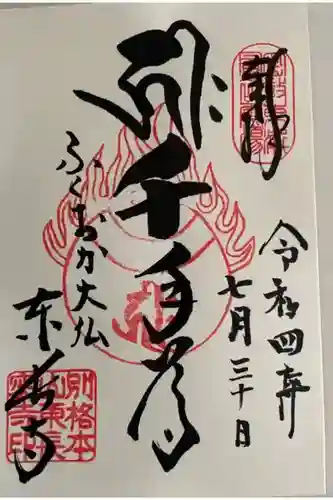 奉拝
令和四年
七月三十日
千手尊
ふくおか大仏
東長寺
別格本
山東長
密寺印